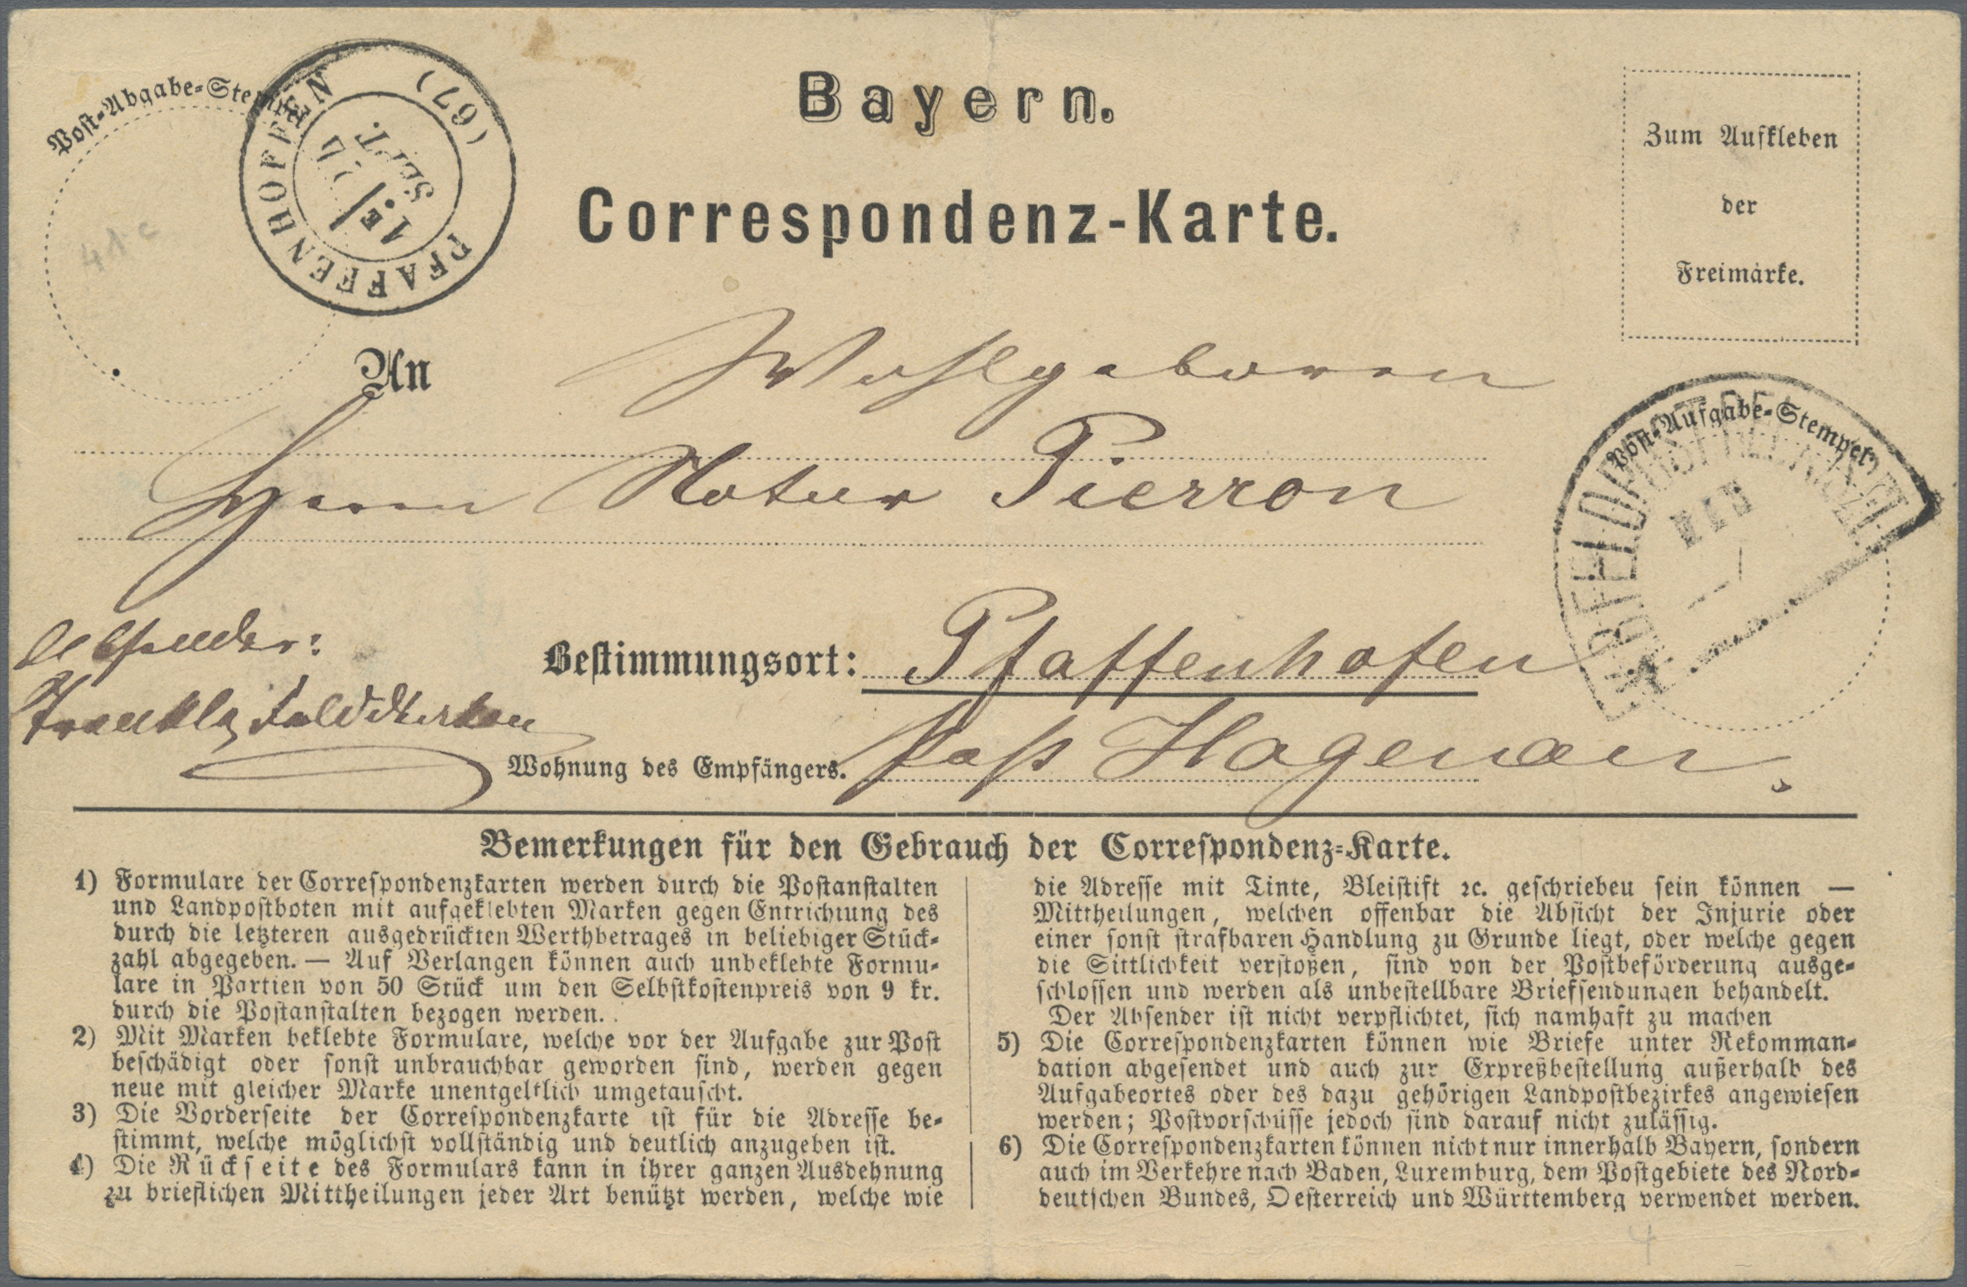 Bayern.
Correspondenz-Karte.
Post-Abgabe-Stempel
PFAFFENHOFFEN (67)
1E
SEPT.
Zum Aufkleben
der
Freimarke.
Post-Aufgabe-Stempel
An
Wohlgeboren
Herrn Notar Pierron
Absender:
Bestimmungsort: Pfaffenhofen
Wohnung des Empfängers. Post Hagenau.
Bemerkungen für den Gebrauch der Correspondenz-Karte.
1) Formulare der Correspondenzkarten werden durch die Postanstalten
und Landpostboten mit aufgeklebten Marken gegen Entrichtung des
durch die letzteren ausgedrückten Werthbetrages in beliebiger Stück-
zahl abgegeben. — Auf Verlangen können auch unbeklebte Formu-
lare in Partien von 50 Stück um den Selbstkostenpreis von 9 kr.
durch die Postanstalten bezogen werden.
2) Mit Marken beklebte Formulare, welche vor der Aufgabe zur Post
beschädigt oder sonst unbrauchbar geworden sind, werden gegen
neue mit gleicher Marke unentgeltlich umgetauscht.
3) Die Vorderseite der Correspondenzkarte ist für die Adresse be-
stimmt, welche möglichst vollständig und deutlich anzugeben ist.
4) Die Rückseite des Formulars kann in ihrer ganzen Ausdehnung
zu brieflichen Mittheilungen jeder Art benützt werden, welche wie
die Adresse mit Tinte, Bleistift ꝛc. geschrieben sein können —
Mittheilungen, welchen offenbar die Absicht der Injurie oder
einer sonst strafbaren Handlung zu Grunde liegt, oder welche gegen
die Sittlichkeit verstoßen, sind von der Postbeförderung ausge-
schlossen und werden als unbestellbare Briefsendungen behandelt.
Der Absender ist nicht verpflichtet, sich namhaft zu machen
5) Die Correspondenzkarten können wie Briefe unter Rekomman-
dation abgesendet und auch zur Expreßbestellung außerhalb des
Aufgabeortes oder des dazu gehörigen Landpostbezirkes angewiesen
werden; Postvorschüsse jedoch sind darauf nicht zulässig.
6) Die Correspondenzkarten können nicht nur innerhalb Bayern, sondern
auch im Verkehre nach Baden, Luxemburg, dem Postgebiete des Nord-
deutschen Bundes, Oesterreich und Württemberg verwendet werden.
4